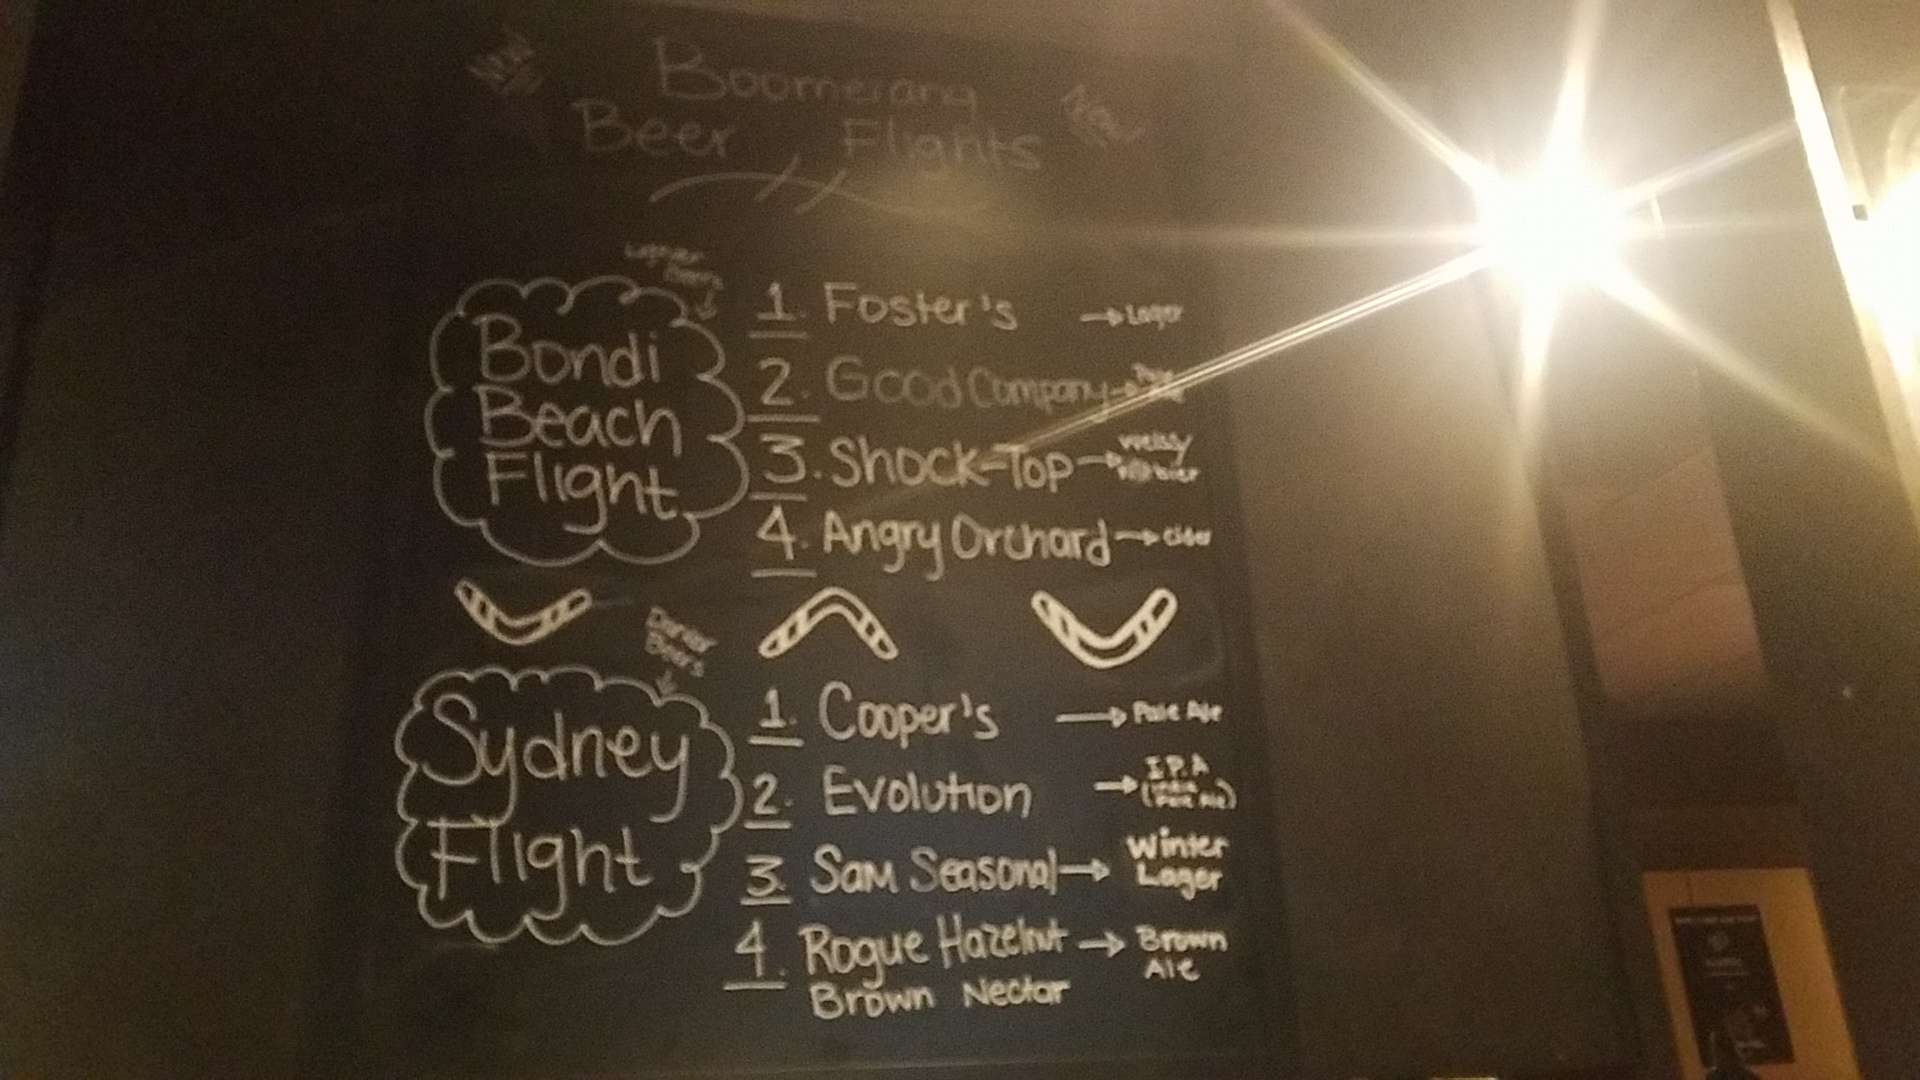 New
Boomerang
New
Beer Flights
Lighter
Beers
Bondi
Beach
Flight
1. Foster's → Lager
2. Good Company → Pale
3. Shock-Top →
4. Angry Orchard → Cider
Darker
Beers
Sydney
Flight
1. Cooper's → Pale Ale
2. Evolution → I.P.A
(India
Pale Ale)
3. Sam Seasonal → Winter
Lager
4. Rogue Hazelnut → Brown
Brown Nectar Ale